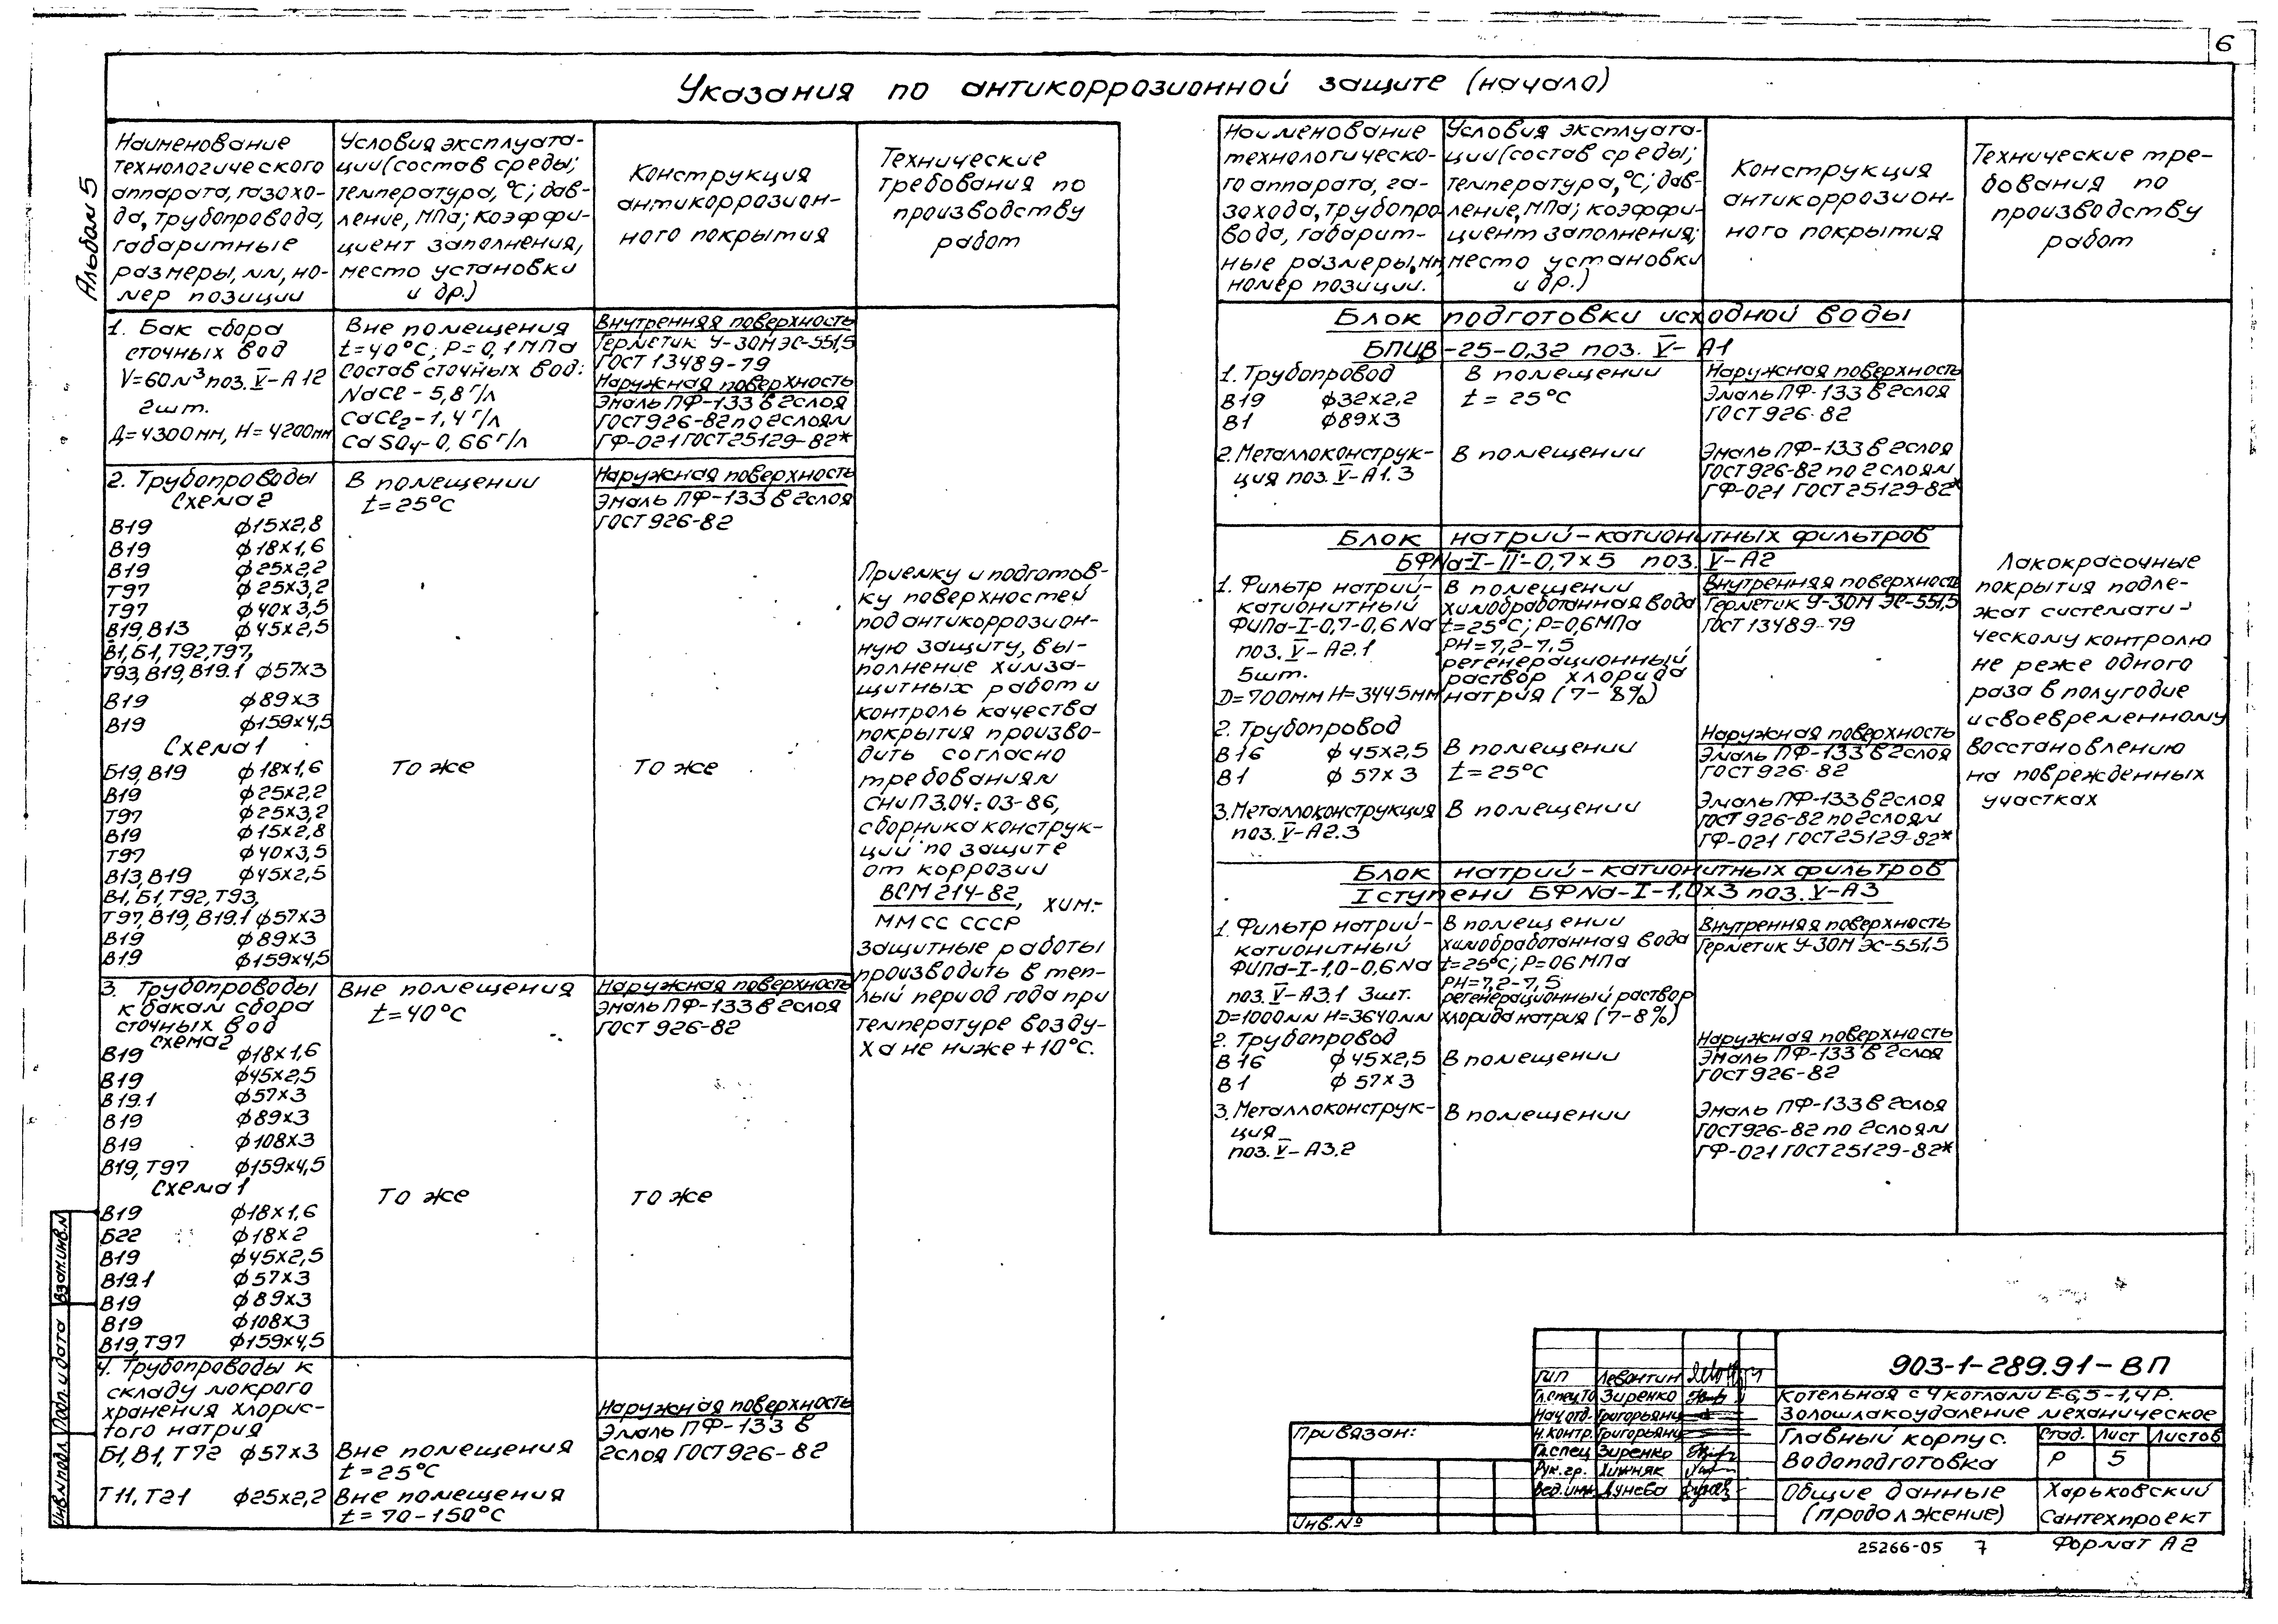 6
Указания по антикоррозионной защите (начало)
Альбом 5
Наименование
технологического
аппарата, газохо-
да, трубопровода,
габаритные
размеры, мм, но-
мер позиции
Условия эксплуата-
ции (состав среды;
температура, °С; дав-
ление, МПа; коэффи-
циент заполнения,
место установки
и др.)
Конструкция
антикоррозион-
ного покрытия
Технические
требования по
производству
работ
1. Бак сбора
сточных вод
V=60м³ поз. V-А12
2шт.
Д=4300мм, Н=4200мм
Вне помещения
t=40°С; Р=0,1МПа
Состав сточных вод:
NaCl - 5,8 г/л
CaCl₂-1,4 г/л
CaSO₄-0,66 г/л
Внутренняя поверхность
Герметик У-30М ЭС-551,5
ГОСТ 13489-79
Наружная поверхность
Эмаль ПФ-133 в 2слоя
ГОСТ926-82 по 2слоям
ГФ-021 ГОСТ25129-82*
2. Трубопроводы
Схема 2
В19 ф15х2,8
В19 ф18х1,6
В19 ф25х2,2
Т97 ф25х3,2
Т97 ф40х3,5
В19, В13 ф45х2,5
В1, Б1, Т92, Т97,
Т93, В19, В19.1 ф57х3
В19 ф89х3
В19 ф159х4,5
Схема 1
Б19, В19 ф18х1,6
В19 ф25х2,2
Т97 ф25х3,2
В19 ф15х2,8
Т97 ф40х3,5
В13, В19 ф45х2,5
В1, Б1, Т92, Т93,
Т97, В19, В19.1 ф57х3
В19 ф89х3
В19 ф159х4,5
В помещении
t=25°С
То же
Наружная поверхность
Эмаль ПФ-133 в 2слоя
ГОСТ 926-82
То же
3. Трубопроводы
к бакам сбора
сточных вод
схема 2
В19 ф18х1,6
В19 ф45х2,5
В19.1 ф57х3
В19 ф89х3
В19 ф108х3
В19, Т97 ф159х4,5
Схема 1
В19 ф18х1,6
Б22 ф18х2
В19 ф45х2,5
В19.1 ф57х3
В19 ф89х3
В19 ф108х3
В19, Т97 ф159х4,5
Вне помещения
t=40°С
То же
Наружная поверхность
Эмаль ПФ-133 в 2слоя
ГОСТ 926-82
То же
4. Трубопроводы к
складу мокрого
хранения хлорис-
того натрия
Б1, В1, Т72 ф57х3
Т11, Т21 ф25х2,2
Вне помещения
t=25°С
Вне помещения
t=70-150°С
Наружная поверхность
Эмаль ПФ-133 в
2слоя ГОСТ 926-82
Приемку и подготов-
ку поверхностей
под антикоррозион-
ную защиту, вы-
полнение химза-
щитных работ и
контроль качества
покрытия произво-
дить согласно
требованиям
СНиП 3.04-03-86,
сборника конструк-
ций по защите
от коррозии
ВСМ 214-82, хим-
ММСС СССР
защитные работы
производить в теп-
лый период года при
температуре возду-
ха не ниже +10°С.
Наименование
технологическо-
го аппарата, га-
зохода, трубопро
вода, габарит-
ные размеры, мм,
номер позиции.
Условия эксплуата-
ции (состав среды;
температура, °С; дав-
ление, МПа; коэффи-
циент заполнения;
место установки
и др.)
Конструкция
антикоррозион-
ного покрытия
Технические тре-
бования по
производству
работ
Блок подготовки исходной воды
БПИВ-25-0,32 поз. V-А1
1. Трубопровод
В19 ф32х2,2
В1 ф89х3
В помещении
t = 25°С
Наружная поверхность
Эмаль ПФ-133 в 2слоя
ГОСТ 926-82
2. Металлоконструк-
ция поз. V-А1.3
В помещении
Эмаль ПФ-133 в 2слоя
ГОСТ 926-82 по 2слоям
ГФ-021 ГОСТ 25129-82*
Блок натрий-катионитных фильтров
БФNa-I-II-0,7х5 поз. V-А2
1. Фильтр натрий-
катионитный
ФИПа-I-0,7-0,6Na
поз. V-А2.1
5шт.
D=700мм Н=3445мм
В помещении
химобработанная вода
t=25°С; Р=0,6МПа
РН=7,2-7,5
регенерационный
раствор хлорида
натрия (7-8%)
Внутренняя поверхность
Герметик У-30М ЭС-551,5
ГОСТ 13489-79
2. Трубопровод
В16 ф45х2,5
В1 ф57х3
В помещении
t=25°С
Наружная поверхность
Эмаль ПФ-133 в 2слоя
ГОСТ 926-82
3. Металлоконструкция
поз. V-А2.3
В помещении
Эмаль ПФ-133 в 2слоя
ГОСТ 926-82 по 2слоям
ГФ-021 ГОСТ 25129-82*
Блок натрий-катионитных фильтров
I ступени БФNa-I-1,0х3 поз. V-А3
1. Фильтр натрий-
катионитный
ФИПа-I-1,0-0,6Na
поз. V-А3.1 3шт.
D=1000мм Н=3640мм
В помещении
химобработанная вода
t=25°С; Р=06МПа
РН=7,2-7,5
регенерационный раствор
хлорида натрия (7-8%)
Внутренняя поверхность
Герметик У-30М ЭС-551,5
2. Трубопровод
В16 ф45х2,5
В1 ф57х3
В помещении
Наружная поверхность
Эмаль ПФ-133 в 2слоя
ГОСТ 926-82
3. Металлоконструк-
ция
поз. V-А3.2
В помещении
Эмаль ПФ-133 в 2слоя
ГОСТ 926-82 по 2слоям
ГФ-021 ГОСТ 25129-82*
Лакокрасочные
покрытия подле-
жат системати-
ческому контролю
не реже одного
раза в полугодие
и своевременному
восстановлению
на поврежденных
участках
Взам.инв.N
Подп. и дата
Инв.N подл.
Привязан:
Инв.№
ГИП Левонтин
Гл.спец.ТО Зиренко
Нач.отд. Григорьянц
Н.контр. Григорьянц
Гл.спец Зиренко
Рук.гр. Хижняк
Вед.инж. Дунева
903-1-289.91-ВП
Котельная с 4 котлами Е-6,5-1,4Р.
Золошлакоудаление механическое
Главный корпус.
Водоподготовка
Стад. Лист Листов
Р 5
Общие данные
(продолжение)
Харьковский
Сантехпроект
25266-05 7
Формат А2